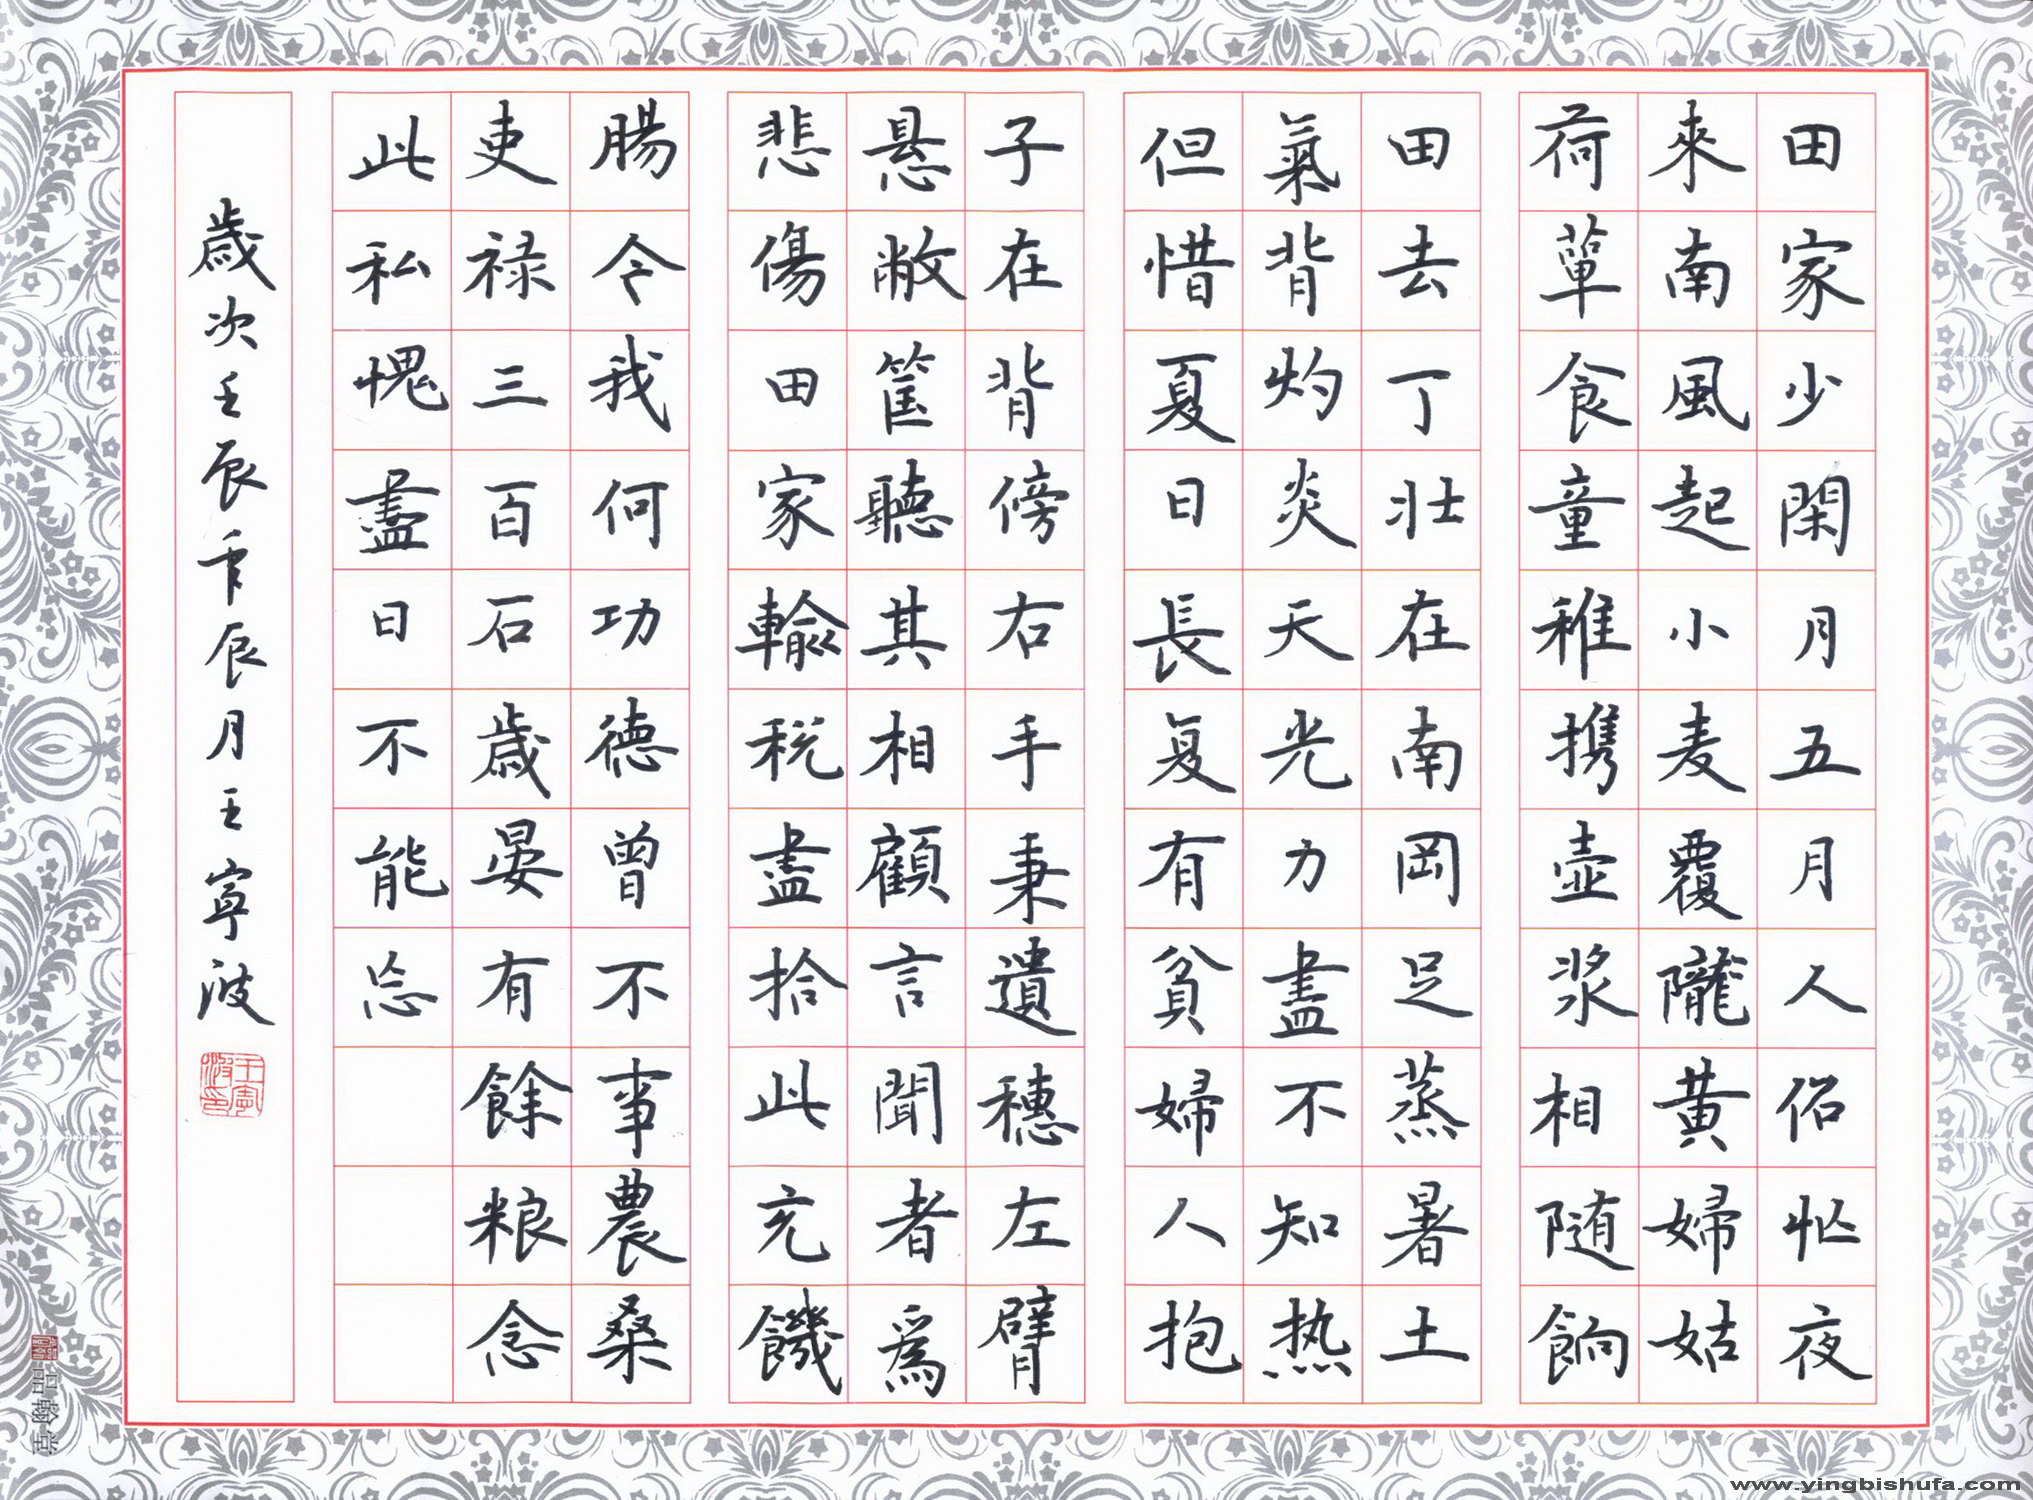 田家少閑月五月人倍忙夜
來南風起小麦覆隴黄婦姑
荷簞食童稚携壺漿相随餉
田去丁壯在南岡足蒸暑土
氣背灼炎天光力盡不知热
但惜夏日長复有貧婦人抱
子在背傍右手秉遺穗左臂
悬敝筐聽其相顧言聞者爲
悲傷田家輸税盡拾此充饑
腸今我何功德曾不事農桑
吏禄三百石歲晏有餘粮念
此私愧盡日不能忘
歲次壬辰年辰月王寧波
王寧波印
品翰堂
www.yingbishufa.com